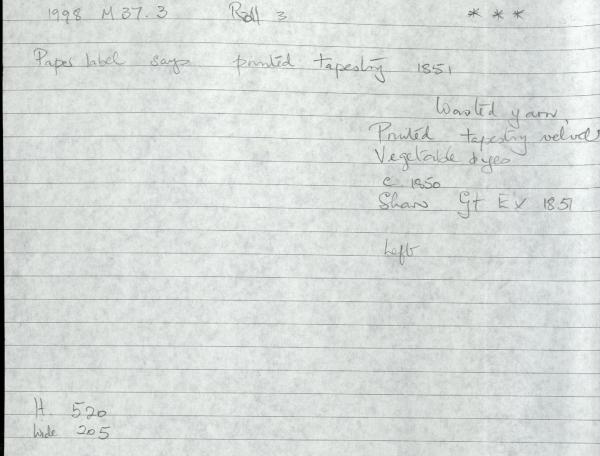 1998 M 37.3 Roll 3 * * *
Paper label says printed tapestry 1851
Worsted yarn,
Printed tapestry velvet
Vegetable dyes
c 1850
Shaw Gt Ex 1851
Left
H. 520
Wide 205